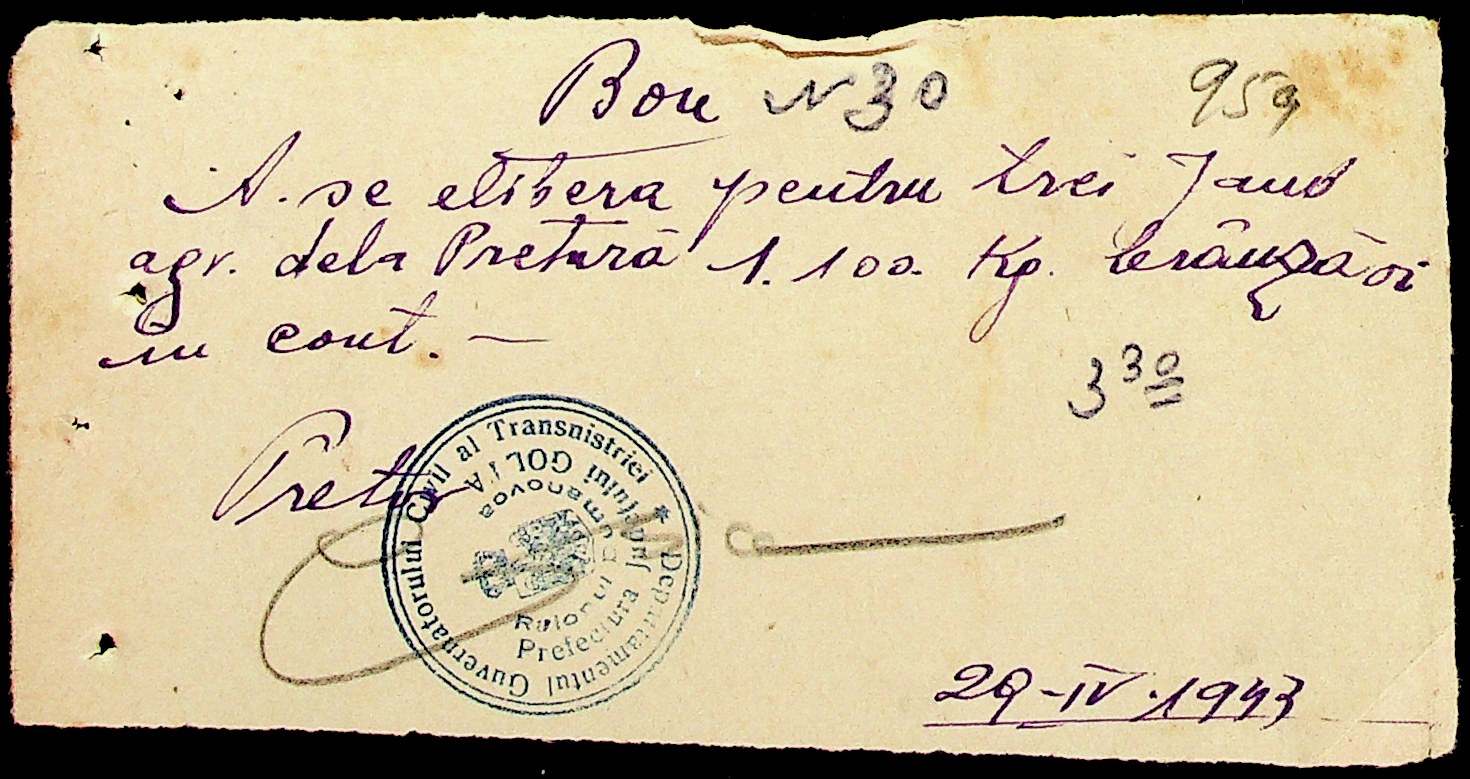 Bon N 30
959
A. se elibera pentru trei Jand
agr. dela Pretură 1.100 Kg. brânză oi
în cont. —
3 30
Pretor
Guvernatorului Civil al Transnistriei * Departamentul
Prefectura Județului GOLTA
Raionul Domanovca
29-IV-1943